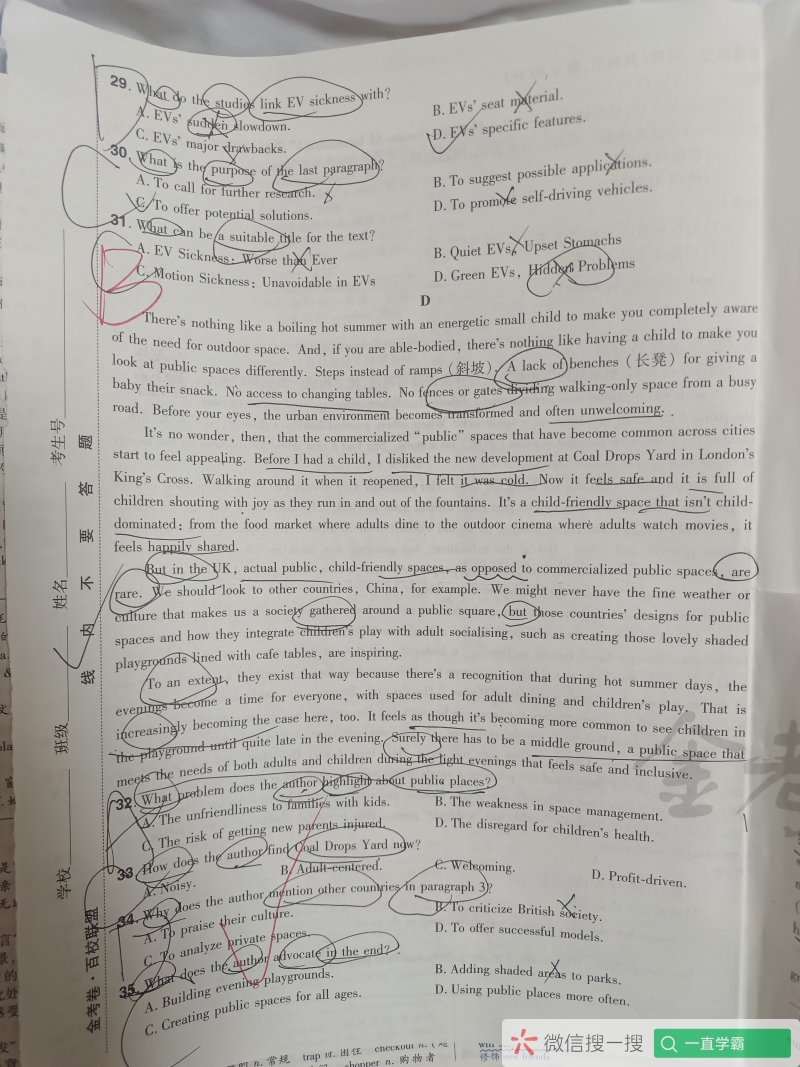 29. What do the studies link EV sickness with?
A. EVs' sudden slowdown.
B. EVs' seat material.
C. EVs' major drawbacks.
D. EVs' specific features.
30. What is the purpose of the last paragraph?
A. To call for further research.
B. To suggest possible applications.
C. To offer potential solutions.
D. To promote self-driving vehicles.
31. What can be a suitable title for the text?
A. EV Sickness: Worse than Ever
B. Quiet EVs, Upset Stomachs
C. Motion Sickness: Unavoidable in EVs
D. Green EVs, Hidden Problems
B
D
There's nothing like a boiling hot summer with an energetic small child to make you completely aware
of the need for outdoor space. And, if you are able-bodied, there's nothing like having a child to make you
look at public spaces differently. Steps instead of ramps (斜坡). A lack of benches (长凳) for giving a
baby their snack. No access to changing tables. No fences or gates dividing walking-only space from a busy
road. Before your eyes, the urban environment becomes transformed and often unwelcoming.
It's no wonder, then, that the commercialized "public" spaces that have become common across cities
start to feel appealing. Before I had a child, I disliked the new development at Coal Drops Yard in London's
King's Cross. Walking around it when it reopened, I felt it was cold. Now it feels safe and it is full of
children shouting with joy as they run in and out of the fountains. It's a child-friendly space that isn't child-
dominated: from the food market where adults dine to the outdoor cinema where adults watch movies, it
feels happily shared.
But in the UK, actual public, child-friendly spaces, as opposed to commercialized public spaces, are
rare. We should look to other countries, China, for example. We might never have the fine weather or
culture that makes us a society gathered around a public square, but those countries' designs for public
spaces and how they integrate children's play with adult socialising, such as creating those lovely shaded
playgrounds lined with cafe tables, are inspiring.
To an extent, they exist that way because there's a recognition that during hot summer days, the
evenings become a time for everyone, with spaces used for adult dining and children's play. That is
increasingly becoming the case here, too. It feels as though it's becoming more common to see children in
the playground until quite late in the evening. Surely there has to be a middle ground, a public space that
meets the needs of both adults and children during the light evenings that feels safe and inclusive.
32. What problem does the author highlight about public places?
A. The unfriendliness to families with kids.
B. The weakness in space management.
C. The risk of getting new parents injured.
D. The disregard for children's health.
33. How does the author find Coal Drops Yard now?
A. Noisy.
B. Adult-centered.
C. Welcoming.
D. Profit-driven.
34. Why does the author mention other countries in paragraph 3?
A. To praise their culture.
B. To criticize British society.
C. To analyze private spaces.
D. To offer successful models.
35. What does the author advocate in the end?
A. Building evening playgrounds.
B. Adding shaded areas to parks.
C. Creating public spaces for all ages.
D. Using public places more often.
学校
班级
姓名
考生号
线 内 不 要 答 题
金考卷·百校联盟
n. 常规 trap vt. 困住 checkout n.
shopper n. 购物者
金考
微信搜一搜
一直学霸